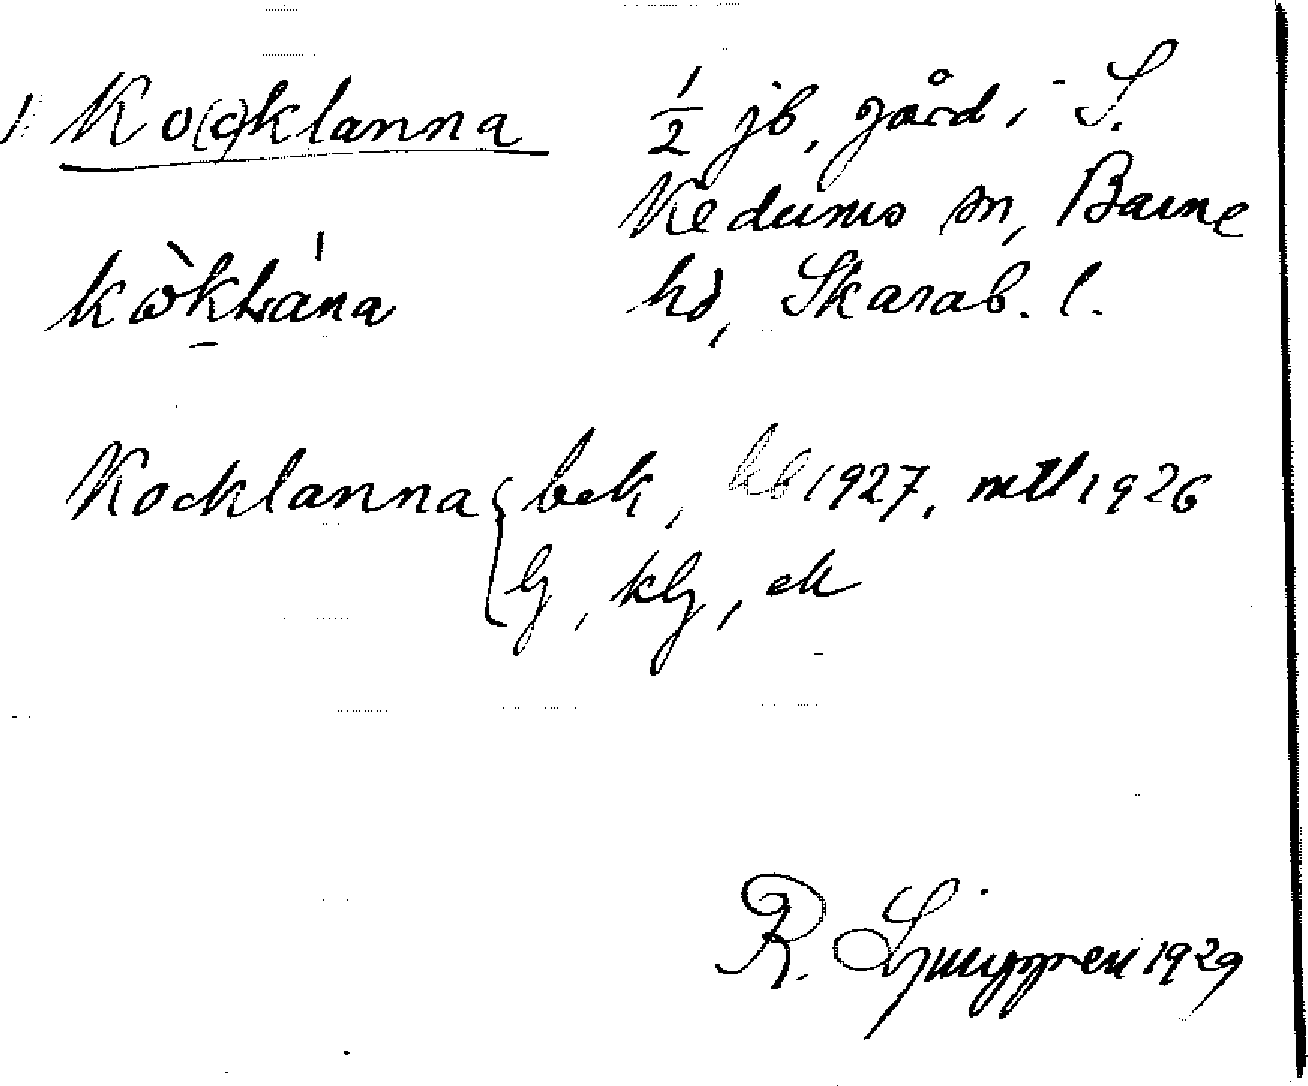 1 Ko(c)klanna
½ jb. gård i S.
Kedums sn, Barne
hd, Skarab. l.
Kocklanna { bek, kb 1927, mtl 1926
lj, klj, ek
R. Ljunggren 1929